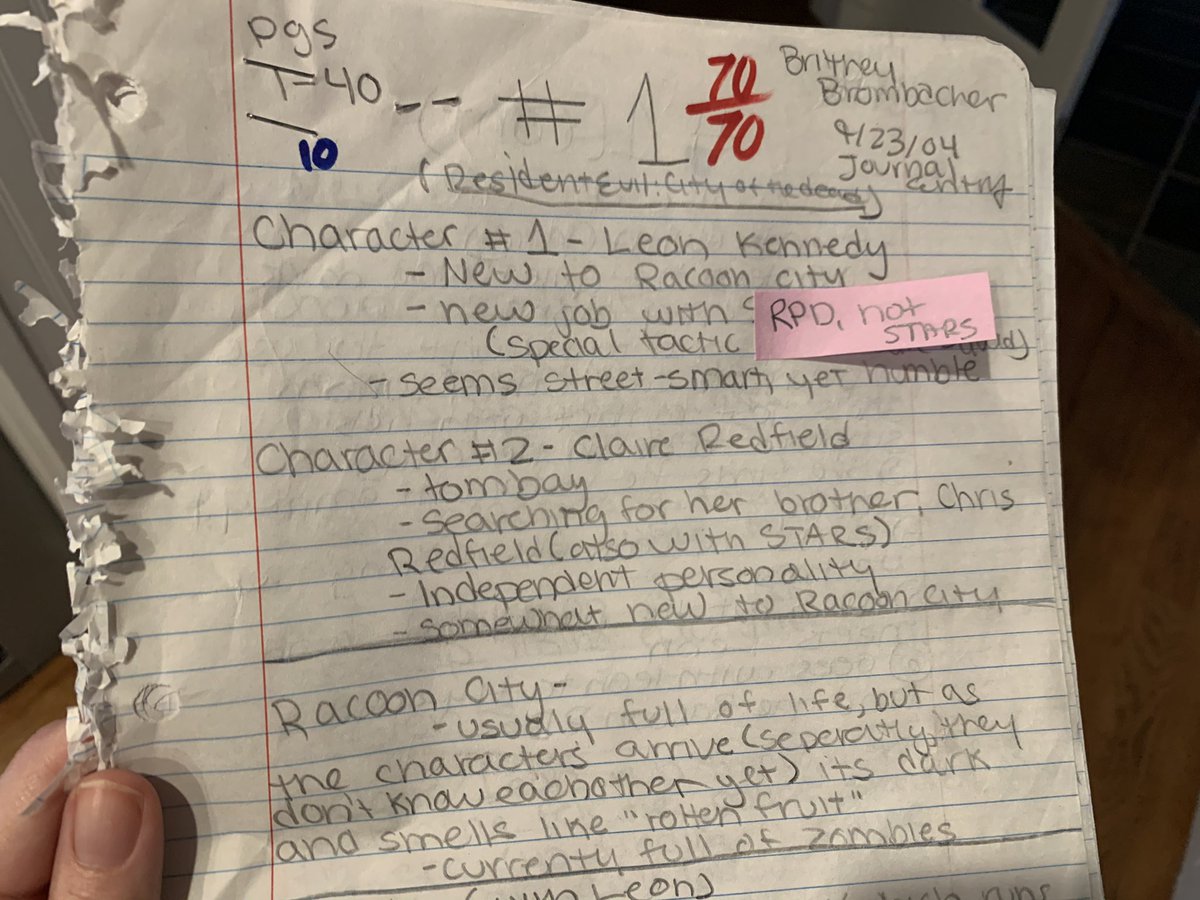 pgs
1-40
10
-- #1
70
70
Britney
Brombacher
4/23/04
Journal
Entry
(Resident Evil: City of the dead)
Character #1 - Leon Kennedy
- New to Racoon city
- new job with S
RPD, not
STARS
(special tactic
- seems street-smart, yet humble
Character #2 - Claire Redfield
- tomboy
- searching for her brother, Chris
Redfield (also with STARS)
- Independent personality
- somewhat new to Racoon City
Racoon City -
- usually full of life, but as
the characters arrive (seperatly, they
don't know eachother yet) its dark
and smells like "rotten fruit"
- currenty full of zombies
Leon)
runs